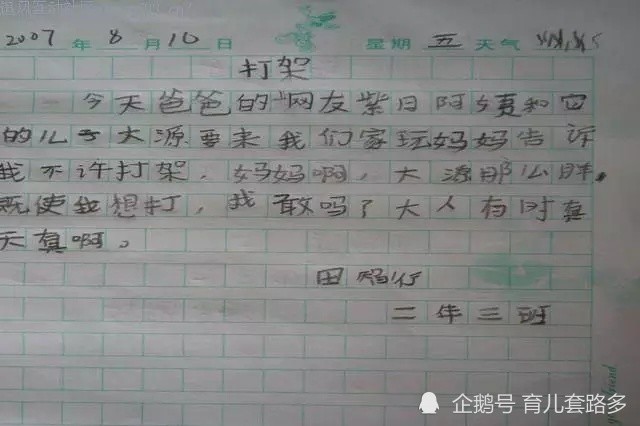 2007 年 8 月 10 日 星期 五 天气
打架
今天爸爸的"网友紫日阿姨和它
的儿子大源要来我们家玩妈妈告诉
我不许打架，妈妈啊，大源那么胖，
既使我想打，我敢吗？大人有时真
天真啊。
田
二年三班
企鹅号 育儿套路多